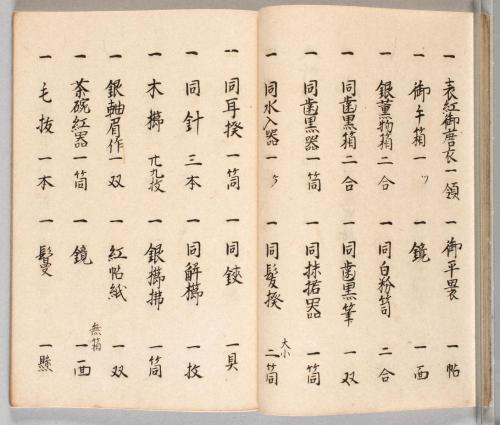 一 表紅御蘑衣一領 一 御平裹 一帖
一 御手箱一ツ 一 鏡 一面
一 銀薫物箱二合 一 同白粉筥 二合
一 同歯黒箱二合 一 同歯黒筆 一双
一 同歯黒器一筒 一 同抹拓器 一筒
一 同水入器一ヶ 一 同髪揆 大小 二筒
一 同耳揆一筒 一 同鋏 一具
一 同針三本 一 同解櫛 一枚
一 木櫛廾九枚 一 銀櫛拂 一筒
一 銀軸眉作一双 一 紅帖紙 一双
一 茶碗紅器一筒 一 鏡 無箱 一面
一 毛抜一本 一 鬘 一懸